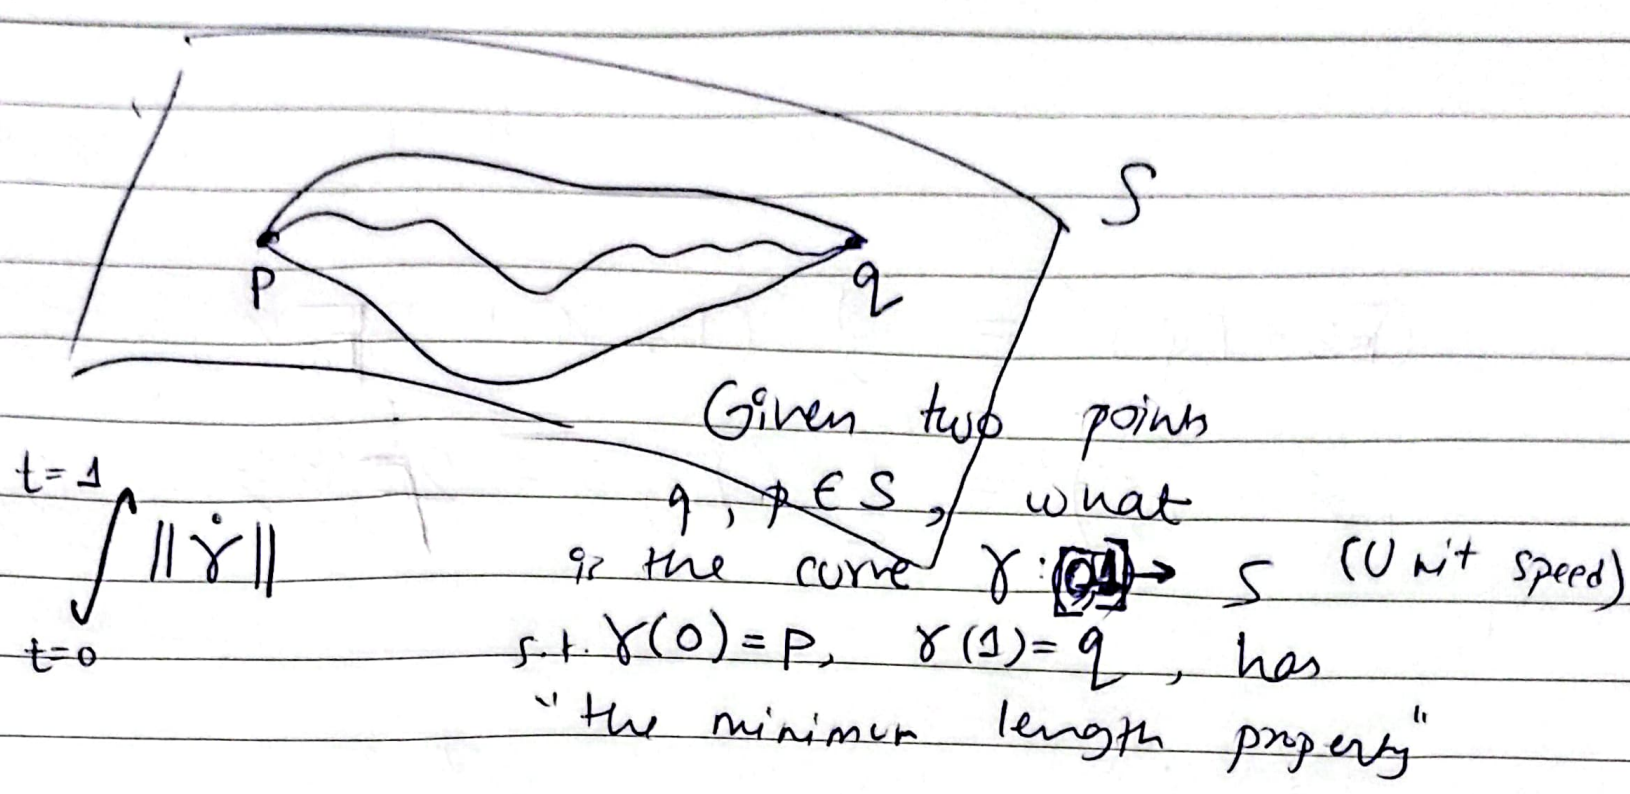 S
p
q
Given two points
q, p ∈ S, what
is the curve γ : [0,1] → S (Unit speed)
s.t. γ(0) = p, γ(1) = q, has
"the minimum length property"
t=1
∫ ||γ̇||
t=0